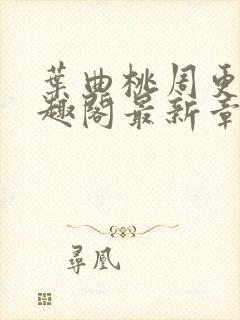 葉曲桃周更
趣閣最新章
尋凰